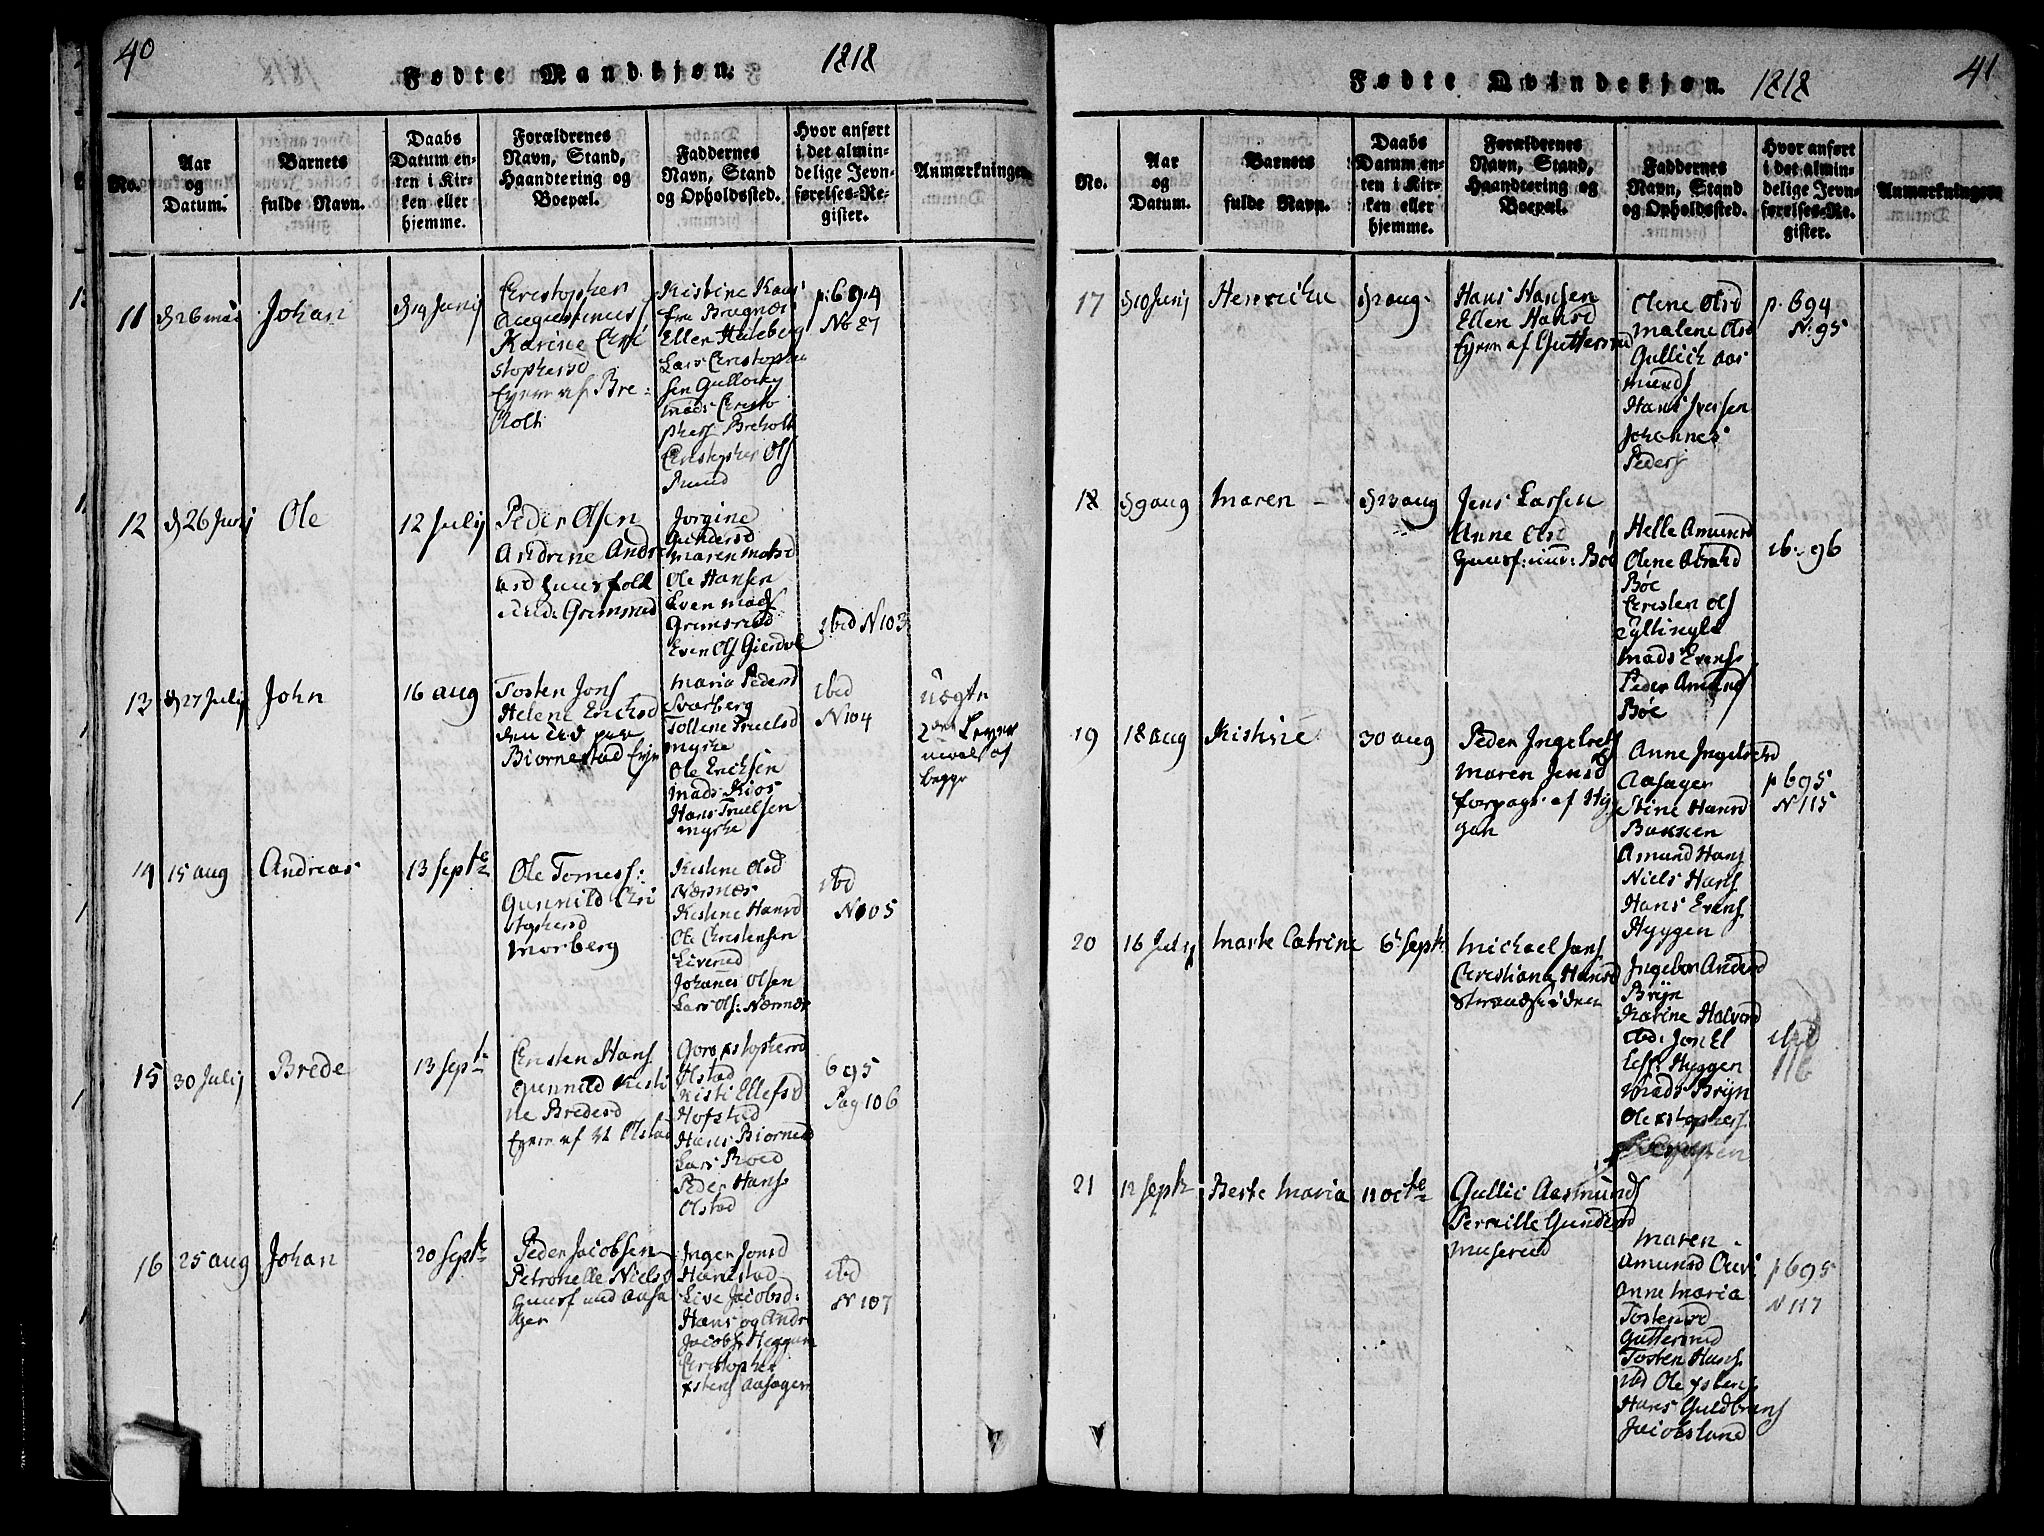 40
Fødte Mandkjøn.
1818
No.
Aar
og
Datum.
Barnets
fulde Navn.
Daabs
Datum en-
ten i Kir-
ken eller
hjemme.
Forældrenes
Navn, Stand,
Haandtering og
Boepæl.
Faddernes
Navn, Stand
og Opholdssted.
Hvor anført
i det almin-
delige Jevn-
førelses-Re-
gister.
Anmærkninger
11
26 mai
Johan
14 Junij
Cristopher
Karine Cri
stophersd
af Bre-
holt
Kistine
fra Bragnæs
Ellen
Lars Cristophe
sen Gullouig
mads Cristo
phers Breholt
Cristopher Ols
p: 694
No 87
12
26 Junij
Ole
12 Julij
Peder Olsen
Andrine Andre
asd huusfolk
Grimsrud
Jorgine
Gundersd
maren matsd
Ole Hansen
Even mads
Grimsrud
Even Ols
ibid N 103
13
27 Julij
John
16 aug
Tosten Jons
Helene Ericksd
Biørnestad
maria Pedersd
Svarberg
Tollene Truelsd
myhre
Ole Ericksen
mads Kios
Hans Truelsen
myhre
ibid
N 104
uægte
begge
14
15 aug
Andreas
13 Septe
Ole Torness:
Gunnild Cri
stophersd
morberg
Kistene Olsd
Nærsnæs
Kistene Hansd
Ole Christensen
Liverud
Johannes Olsen
Lars Ols: Nærsnæs
ibd
N 105
15
30 Julij
Brede
13 Sept
Cristen Hans
Gunnild Kisti
ne Bredesd
af Olstad
Goro xstophersd
Olstad
Kisti Ellefsd
Hofstad
Hans Biornsd
Lars Roed
Peder Hans
Olstad
695
Pag 106
16
25 aug
Johan
20 Septe
Peder Jacobsen
Petronelle Nielsd
huusf Aasa
ger
Inger Jonsd
Live Jacobsd:
Hans og Andr
Jacobs Heggum
Cristopher
xstens Aasagen
ibd
N 107
Fødte Qvindekjøn.
1818
41
No.
Aar
og
Datum.
Barnets
fulde Navn.
Daabs
Datum en-
ten i Kir-
ken eller
hjemme.
Forældrenes
Navn, Stand,
Haandtering og
Boepæl.
Faddernes
Navn, Stand
og Opholdssted.
Hvor anført
i det almin-
delige Jevn-
førelses-Re-
gister.
Anmærkninger
17
10 Junij
2 aug
Hans Hansen
Ellen Hansd
af Guttersrud
Olene Olsd
malene Olsd
Gullich Aas
munds
Hans Iversen
Johannes
Peders
p. 694
N. 95
18
9 aug
maren
23 aug
Jens Larsen
Anne Olsd
Huusf: Bøe
Helle Amunsd
Olene
Bøe
Cristen Ols
mads Evens
Peder Amunds
Bøe
ib. 96
19
18 aug
Kistine
30 aug
Peder Ingelrets
maren Jensd
af Hy
gen
Anne Ingelretsd
Aasager
Stine Hansd
Bakken
Amund Hans
Niels Hans
Hans Evens
Hyggen
p 695
N 115
20
16 July
marte Catrine
6 Sept
michael Jans
Cristiana Hansd
Ingebor Andersd
Brÿn
Karine Halvorsd
ibd: Jon El
lefs Hyggen
mads Brÿn
Ole xstophers
ibid
116
21
12 Sept
Berte maria
11 octe
Gullic Aasmunds
Pernille Gundersd
muserud
maren
Amunsd
Anne maria
Tostensd
Guttersrud
Tosten Hans
ibd Ole xstens
Hans Guldbrans
Jacobslund
p 695
N 117